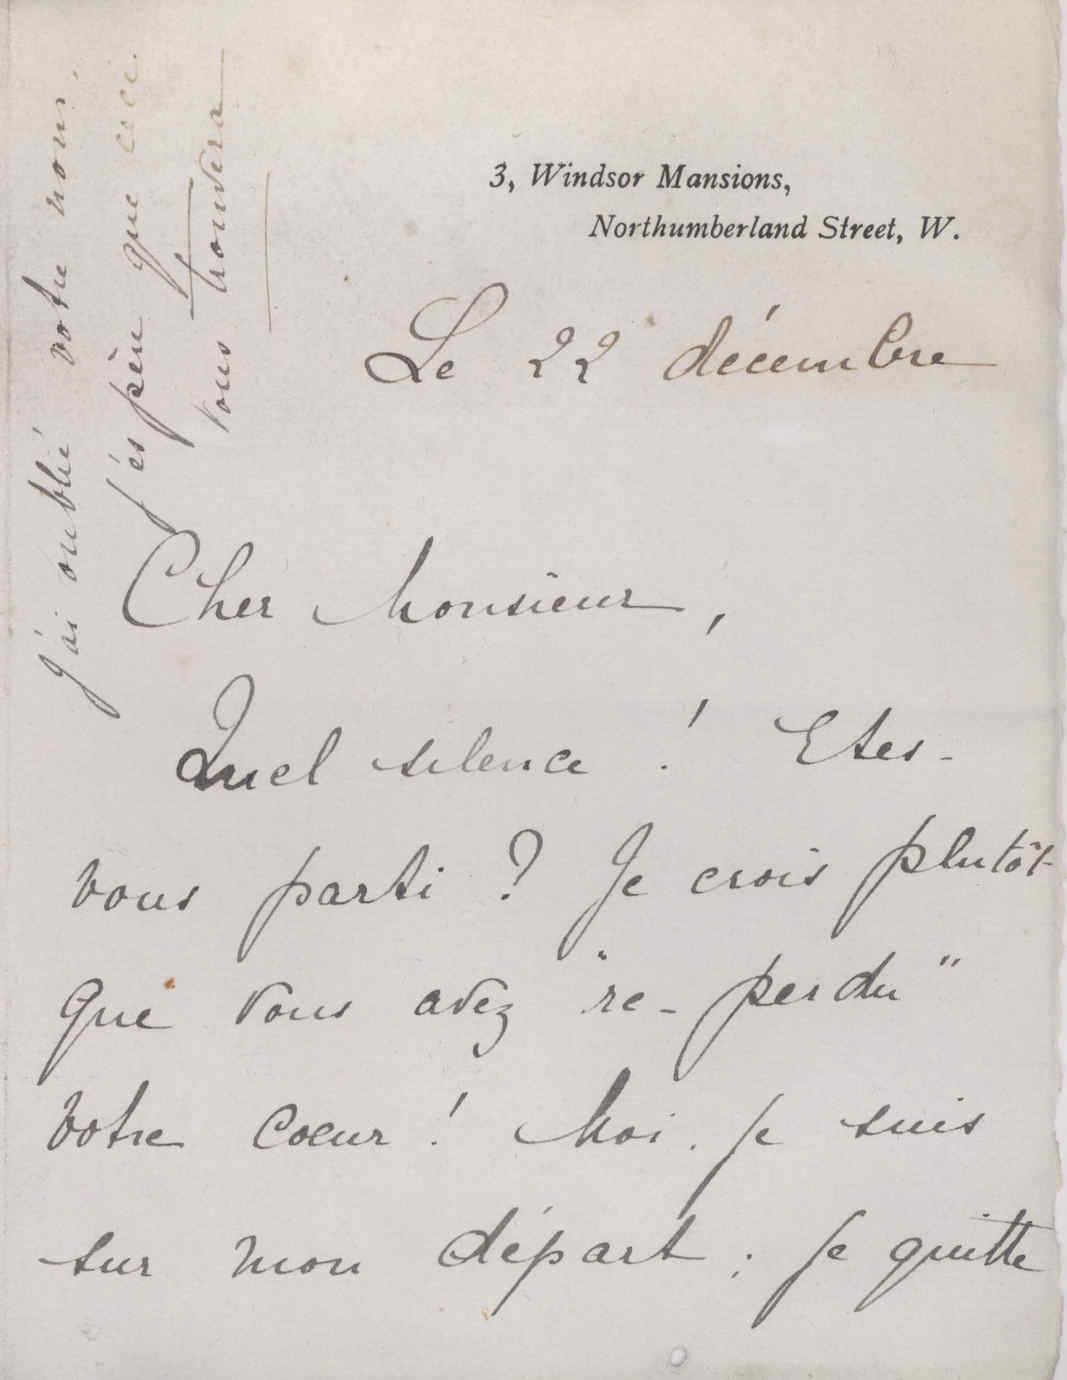 3, Windsor Mansions,
Northumberland Street, W.
Le 22 décembre
Cher Monsieur,
Quel silence ! Etes-
vous parti ? Je crois plutôt
que vous avez "re-perdu"
votre coeur ! Moi, je suis
sur mon départ ; je quitte
J'ai oublié votre nom,
j'espère que ceci
vous trouvera